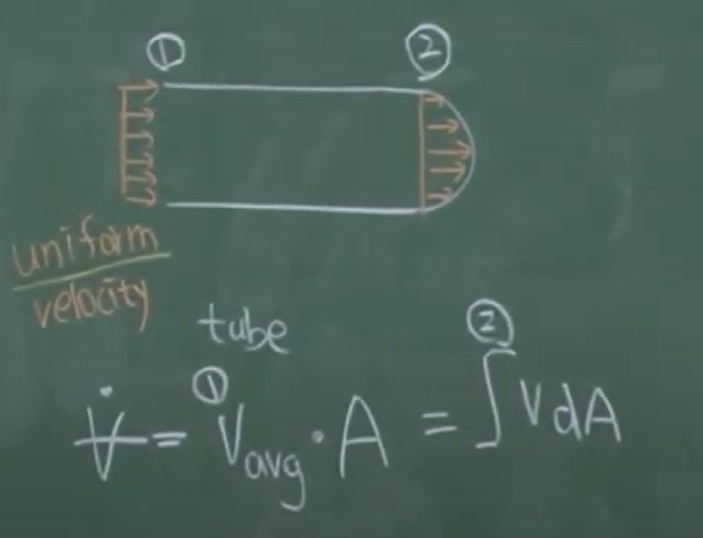 ① ②
uniform
velocity
tube
① ②
V̶̇ = Vavg · A = ∫ V dA